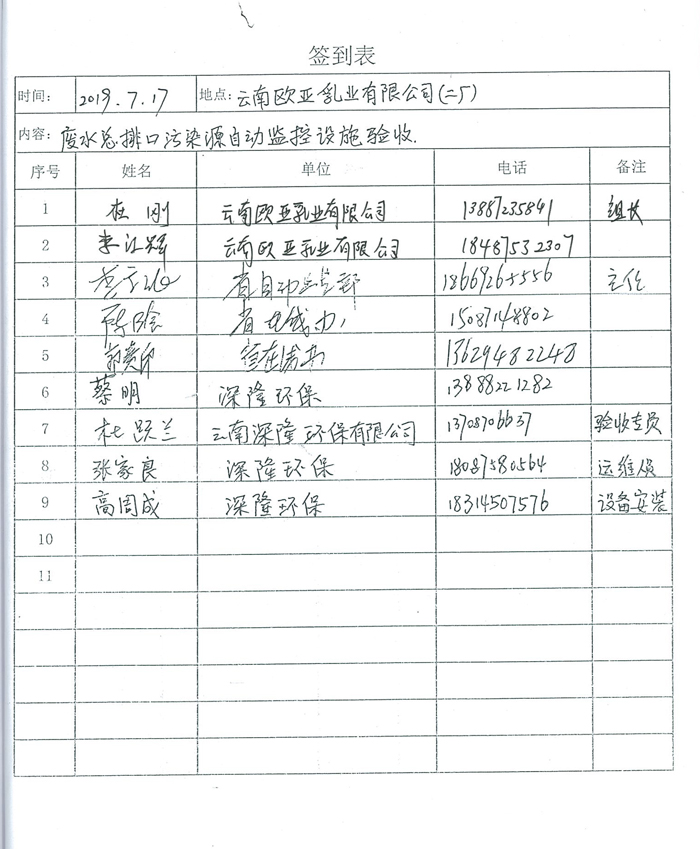 签到表
时间: 2019.7.17 地点: 云南欧亚乳业有限公司(二厂)
内容: 废水总排口污染源自动监控设施验收.
序号 姓名 单位 电话 备注
1 杜刚 云南欧亚乳业有限公司 13887235841 组长
2 李江辉 云南欧亚乳业有限公司 18487532307
3 18669265556 主任
4 15087148802
5 13629482248
6 蔡明 深隆环保 13888221282
7 杜跃兰 云南深隆环保有限公司 验收专员
8 张家良 深隆环保 18087580564 运维员
9 高周成 深隆环保 18314507576 设备安装
10
11